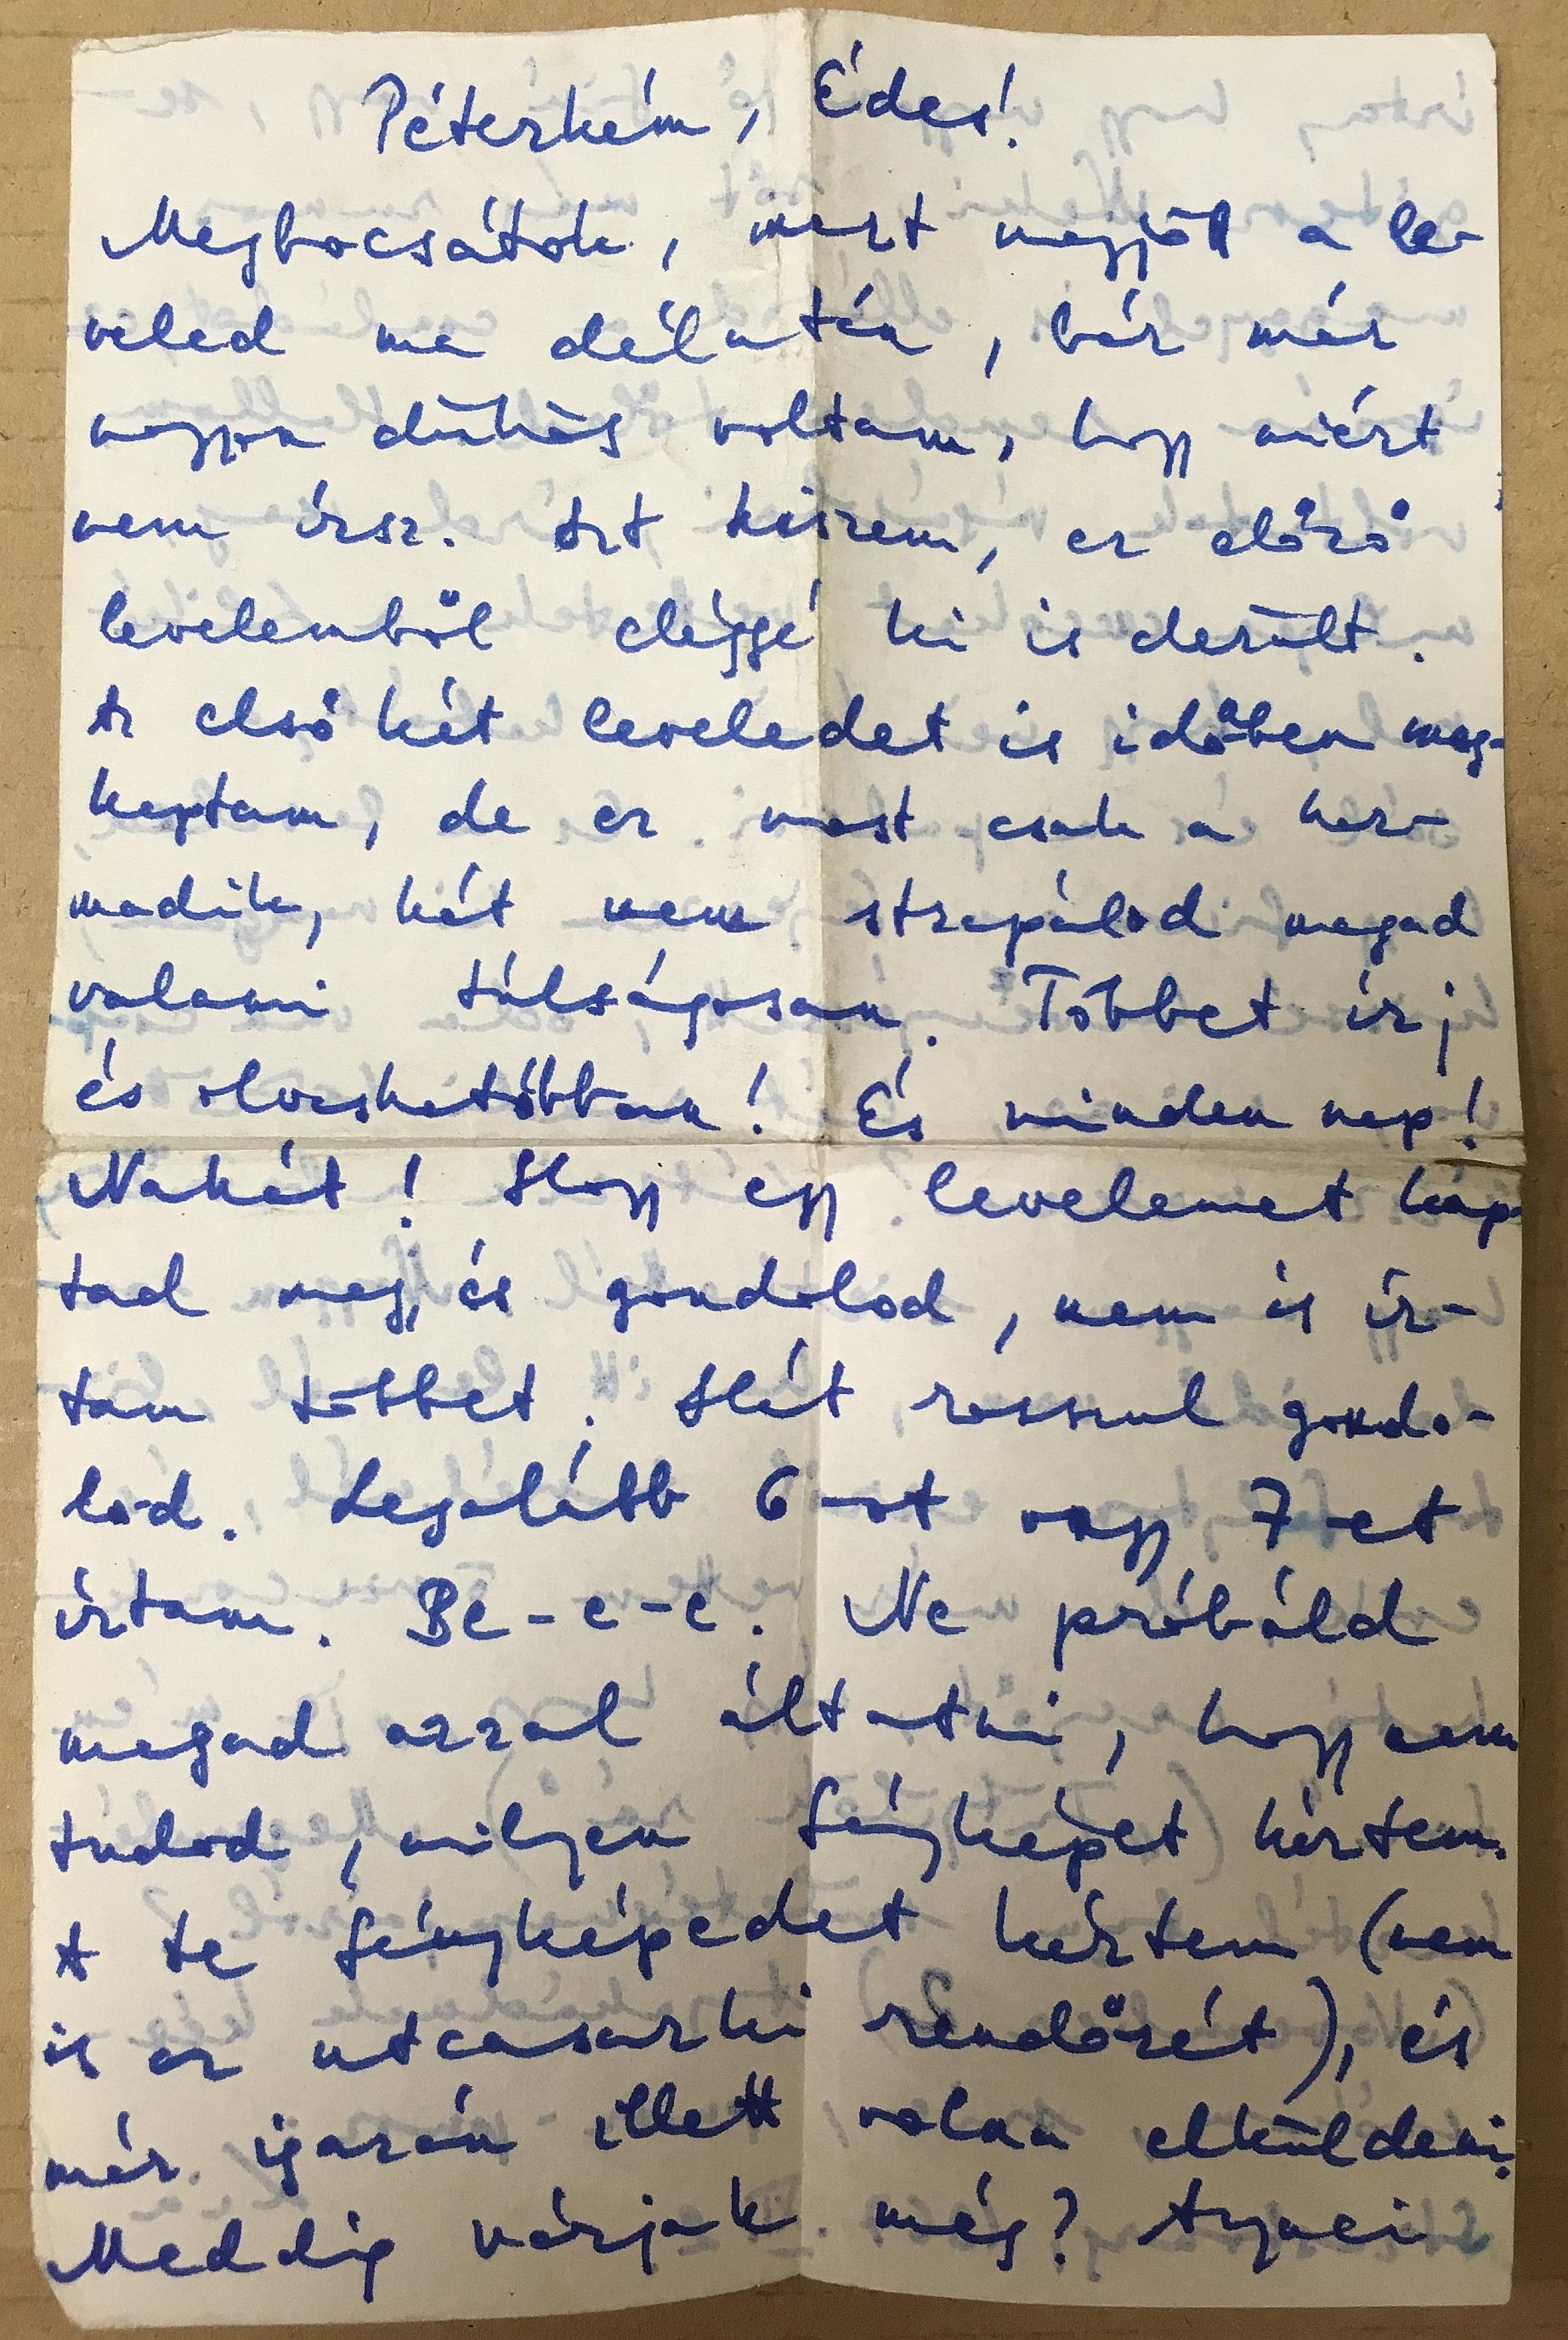 Péterkém, Édes!
Megbocsátok, mert megjött a le-
veled ma délután, bár már
nagyon dühös voltam, hogy miért
nem írsz. Azt hiszem, ez előző
levelemből eléggé ki is derült.
Az első két leveledet is időben meg-
kaptam, de ez most csak a har-
madik, hát nem strapálod magad
valami túlságosan. Többet írj
és olvashatóbban! És minden nap!
Nahát! Hogy egy levelemet kap-
tad meg, és gondolod, nem is ír-
tam többet. Hát rosszul gondo-
lod. Legalább 6-ot vagy 7-et
írtam. Be-e-e. Ne próbáld
magad azzal áltatni, hogy nem
tudod, milyen fényképet kértem.
A te fényképedet kértem (nem
is az utcasarki rendőrét), és
már igazán illett volna elküldeni.
Meddig várjak még? Annei